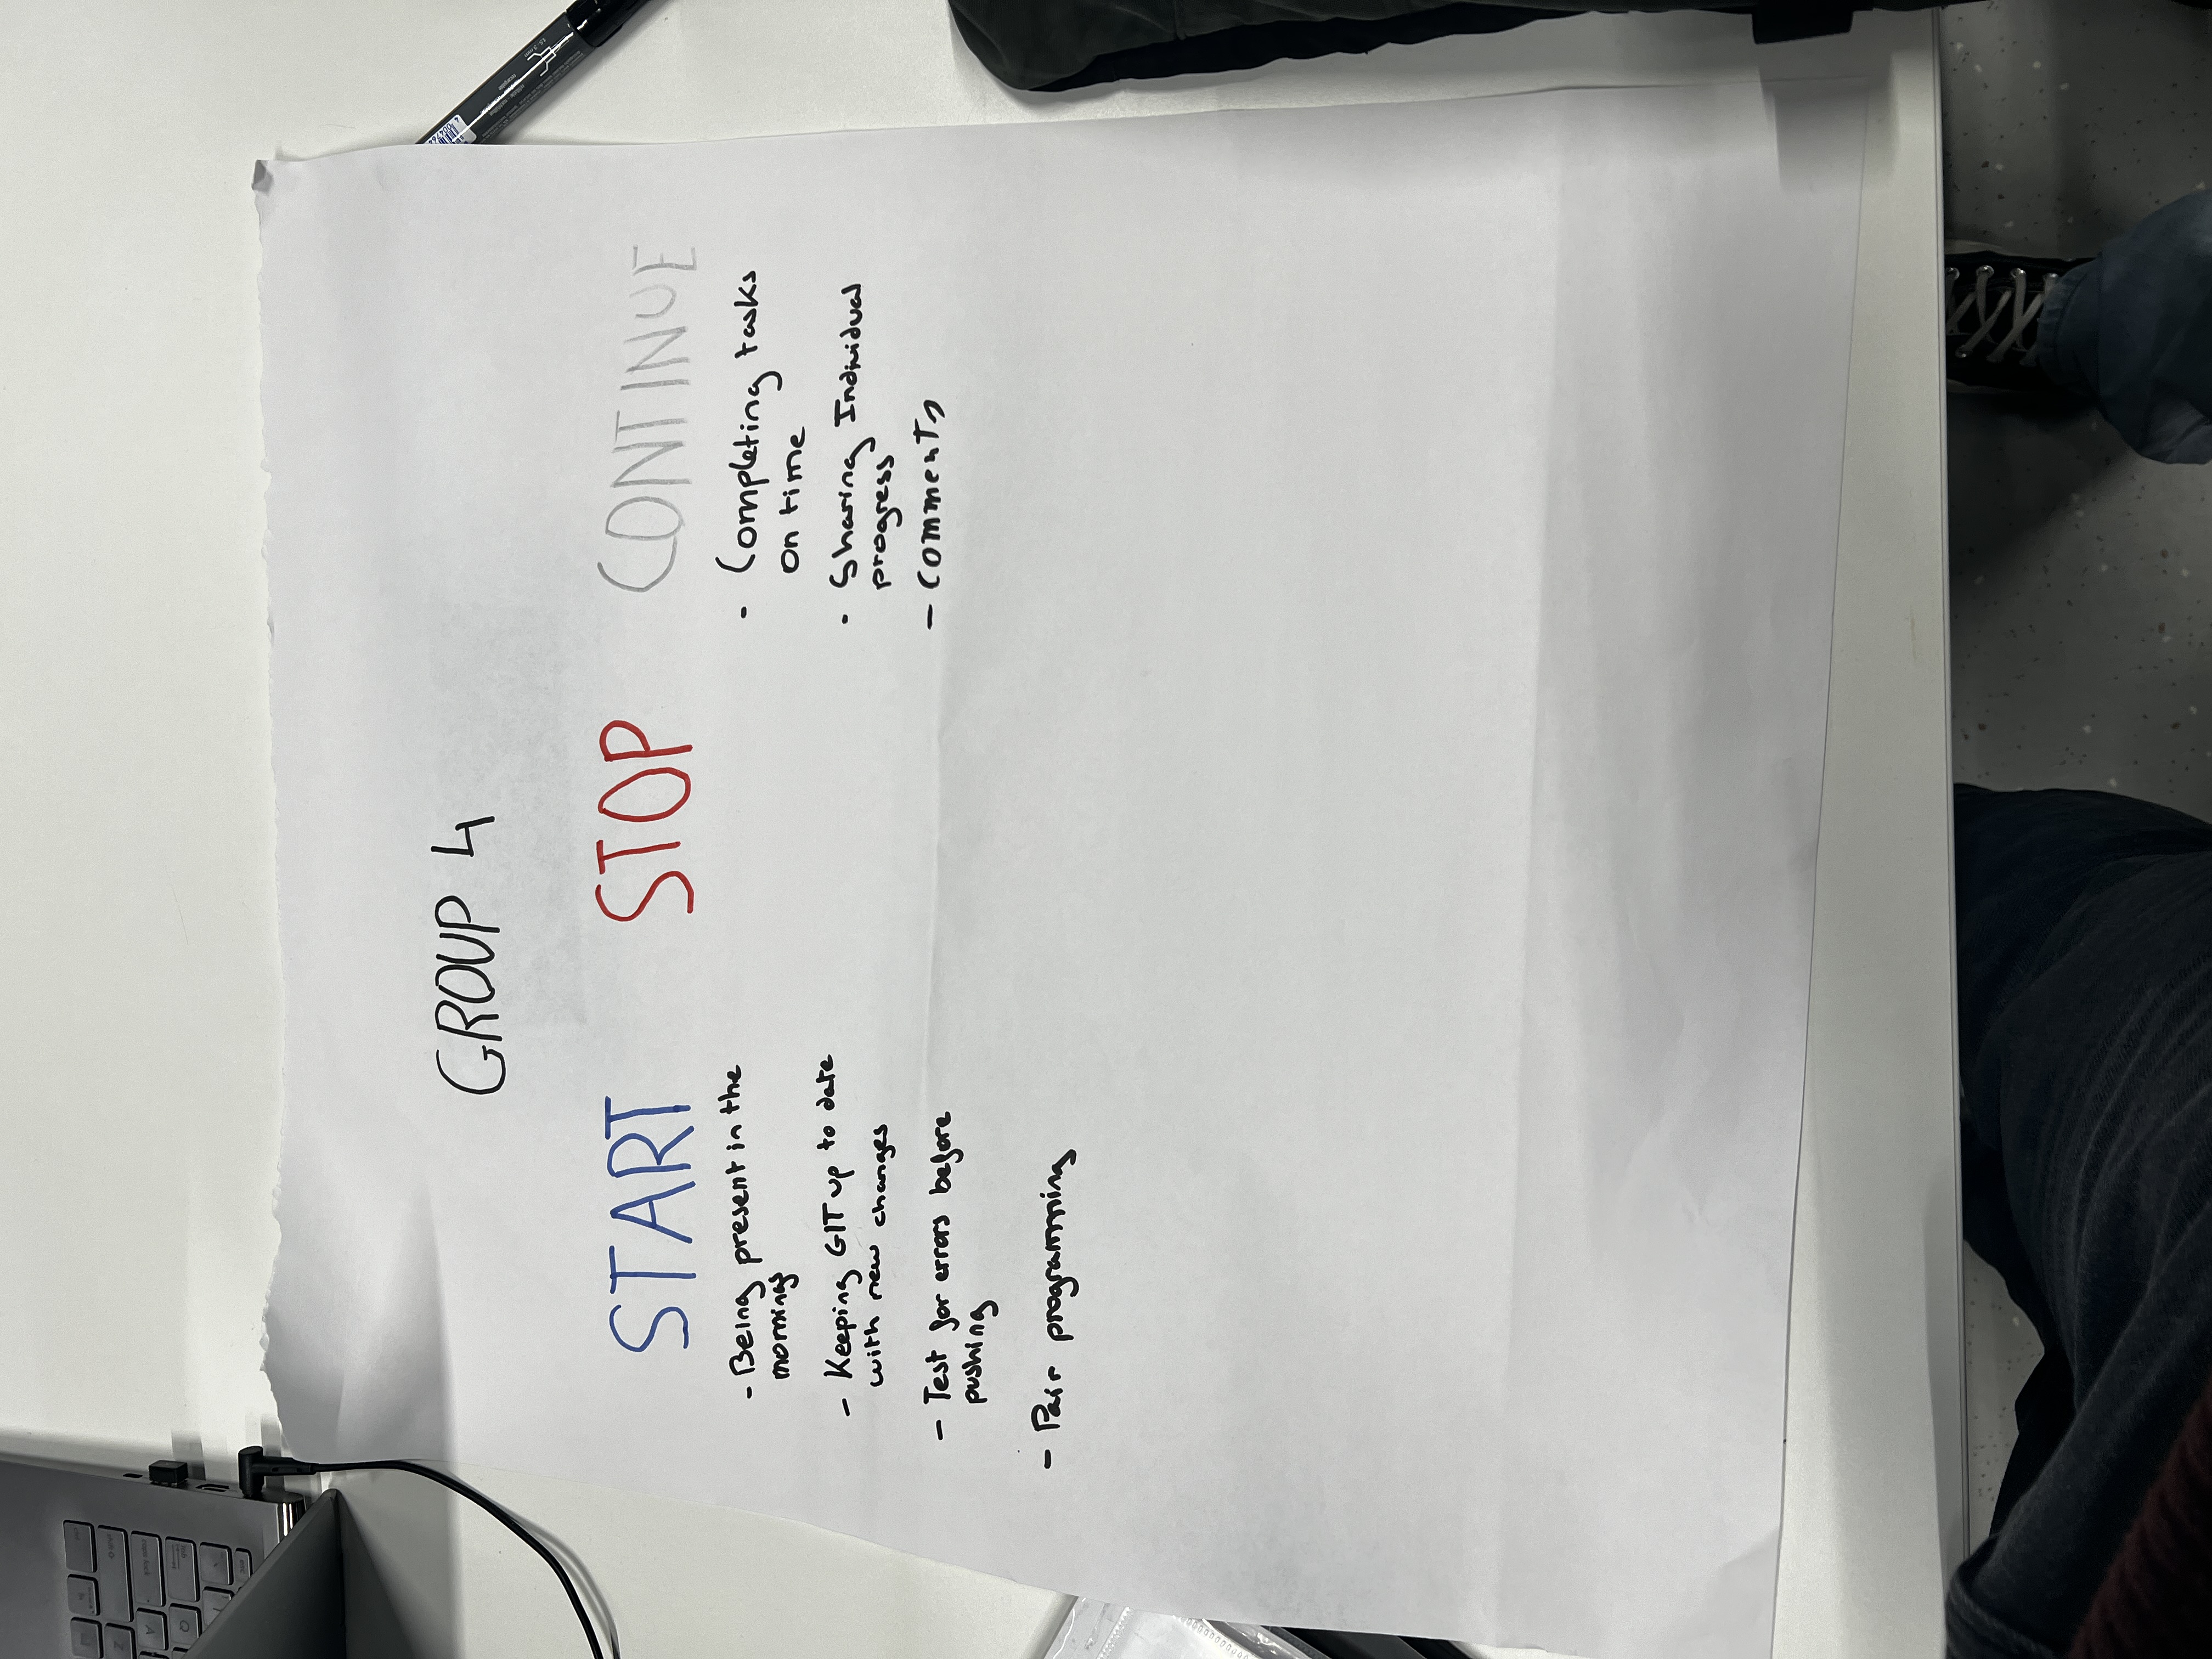 GROUP 4
START
- Being present in the
mornings
- Keeping GIT up to date
with new changes
- Test for errors before
pushing
- Pair programming
STOP
CONTINUE
- Completing tasks
on time
- Sharing Individual
progress
- comments